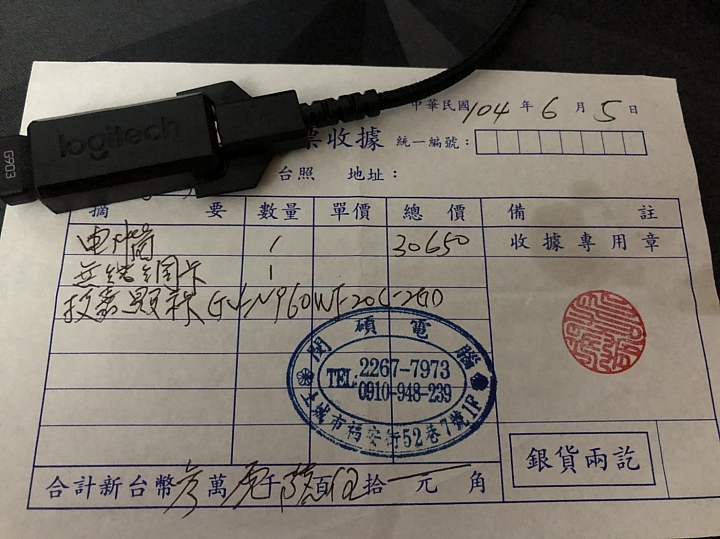 logitech
G903
中華民國104年6月5日
票收據 統一編號：
台照 地址：
摘要 數量 單價 總價 備註
電腦 1 30650 收據專用章
無線網卡 1
技嘉顯示 GV-N960WF2OC-2GD
閎碩電腦
TEL: 2267-7973
0910-948-239
土城市福安街52巷7號1F
銀貨兩訖
合計新台幣 萬 千 百 拾 元 角